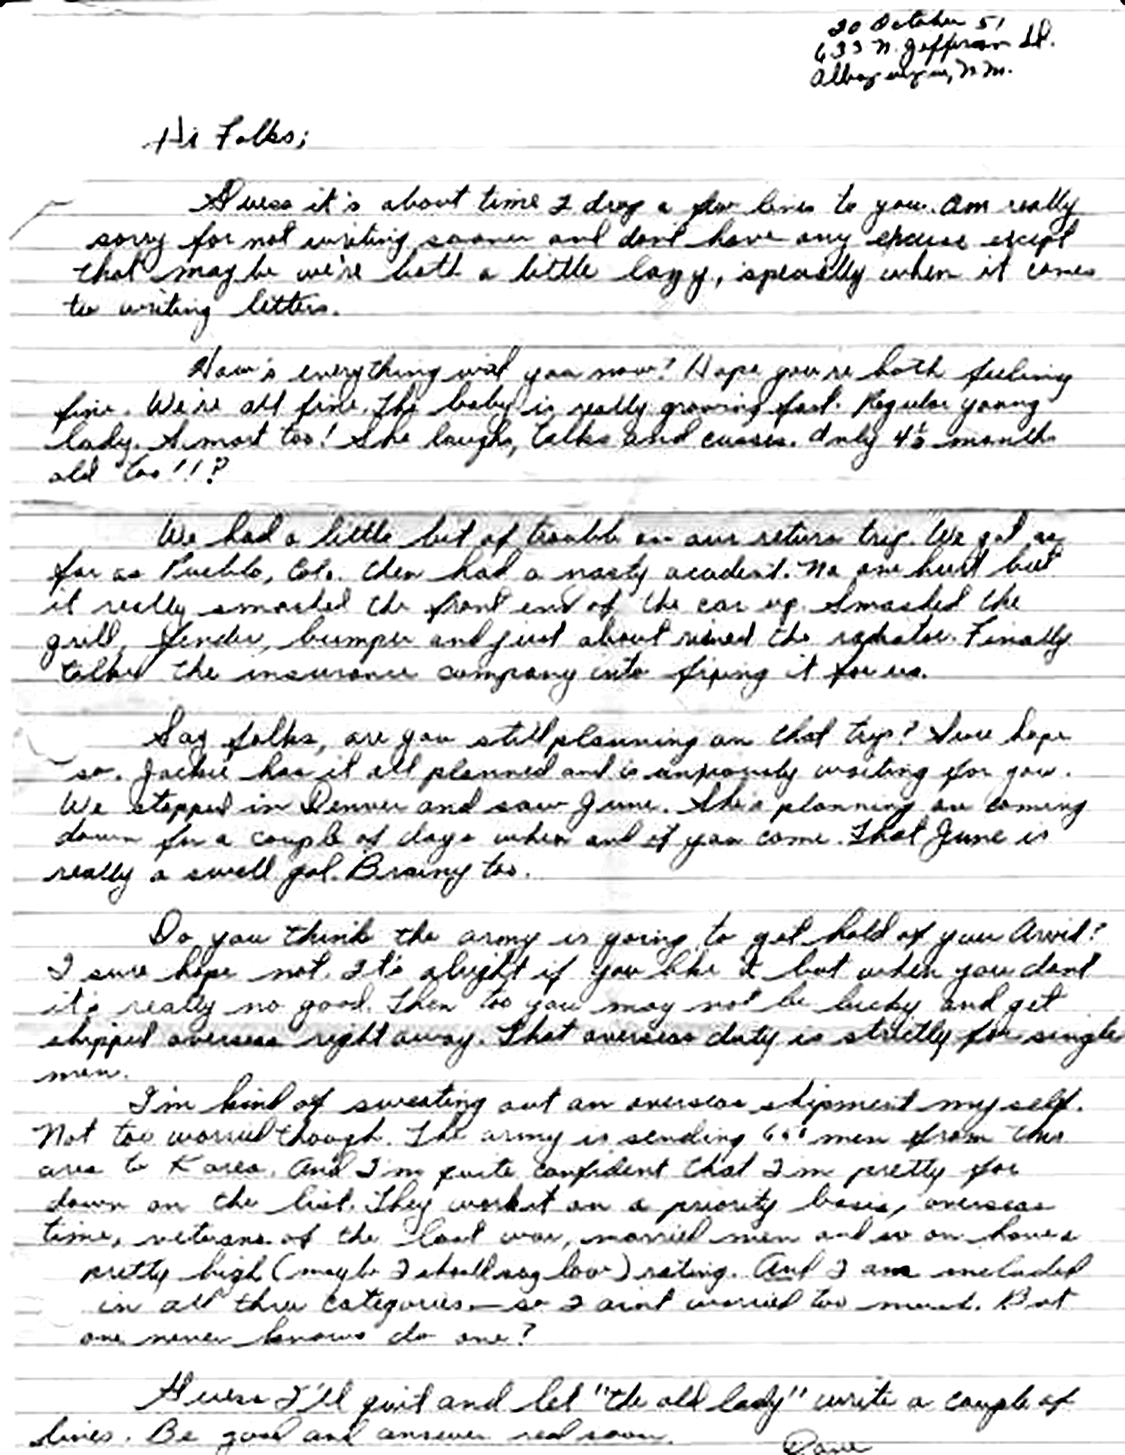 20 October 51
633 N. Jefferson St.
Albuquerque, N.M.
Hi Folks;
Guess it's about time I drop a few lines to you. Am really
sorry for not writing sooner and dont have any excuse except
that maybe we're both a little lazy, 'specially when it comes
to writing letters.
How's everything with you now? Hope you're both feeling
fine. We're all fine. The baby is really growing fast. Regular young
lady. Smart too! She laughs, talks and cusses. Only 4½ months
old too!!?
We had a little bit of trouble on our return trip. We got as
far as Pueblo, Colo. then had a nasty accident. No one hurt but
it really smashed the front end of the car up. Smashed the
grill, fender, bumper and just about ruined the radiator. Finally
talked the insurance company into fixing it for us.
Say folks, are you still planning on that trip? Sure hope
so. Jackie has it all planned and is anxiously waiting for you.
We stopped in Denver and saw June. She's planning on coming
down for a couple of days when and if you come. That June is
really a swell gal. Brainy too.
Do you think the army is going to get hold of you Arvid?
I sure hope not. It's alright if you like it but when you dont
it's really no good. Then too you may not be lucky and get
shipped overseas right away. That overseas duty is strictly for single
men.
I'm kind of sweating out an overseas shipment myself.
Not too worried though. The army is sending men from this
area to Korea. And I'm quite confident that I'm pretty far
down on the list. They work it on a priority basis, overseas
time, veterans of the last war, married men and so on have a
pretty high (maybe I should say low) rating. And I am included
in all three categories – so I aint worried too much. But
one never knows do one?
Guess I'll quit and let "the old lady" write a couple of
lines. Be good and answer real soon.
Dave